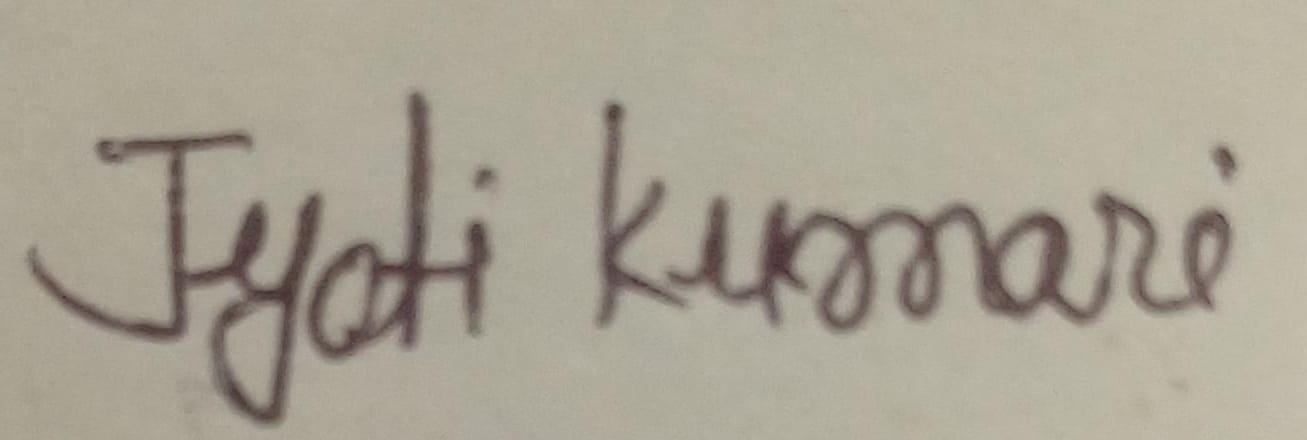 Jyoti kumari